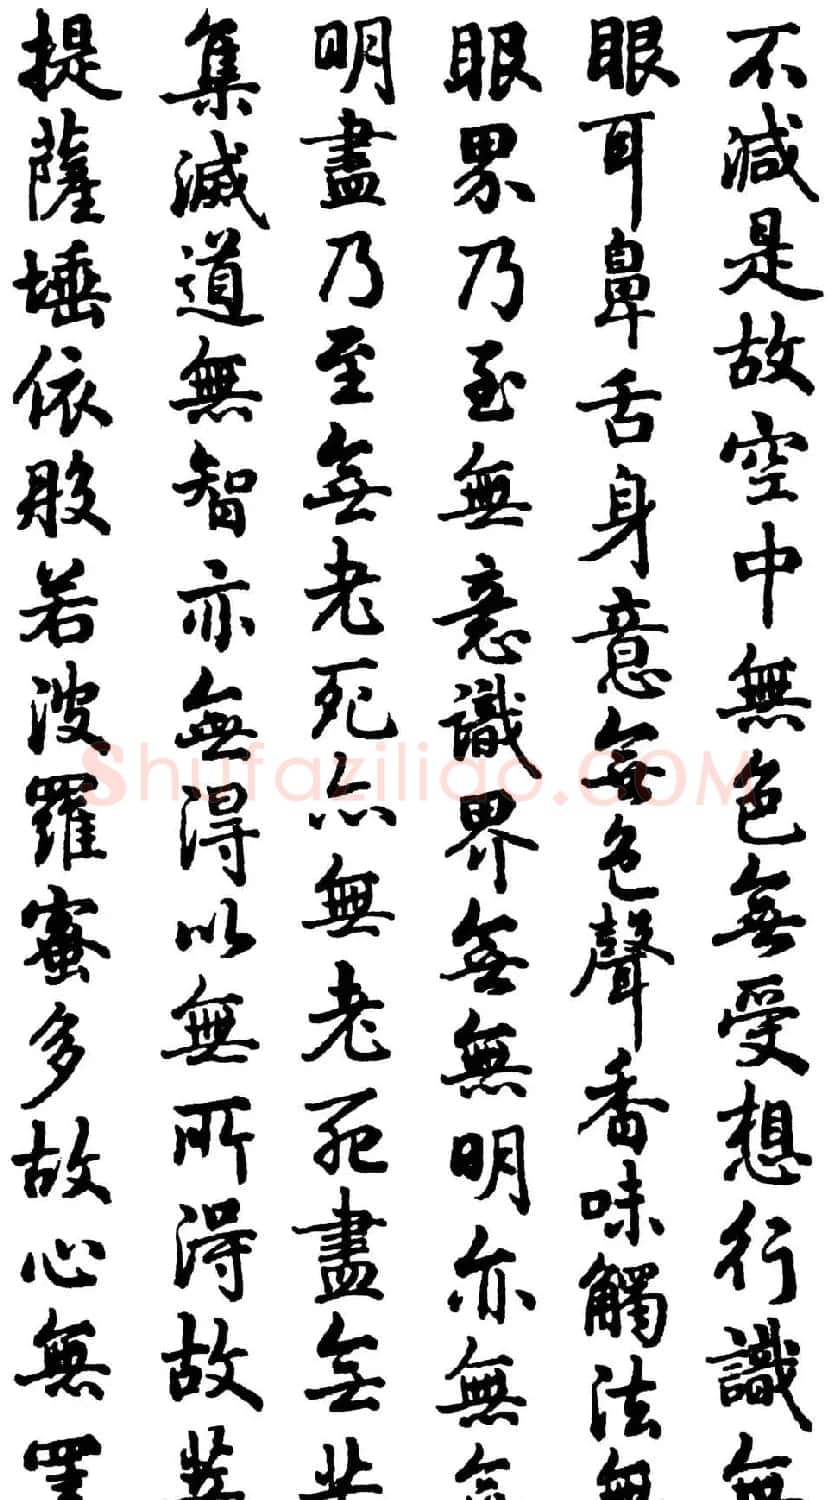 不減是故空中無色無受想行識無
眼耳鼻舌身意無色聲香味觸法無
眼界乃至無意識界無無明亦無無
明盡乃至無老死亦無老死盡無苦
集滅道無智亦無得以無所得故菩
提薩埵依般若波羅蜜多故心無罣
Shufaziliao.COM